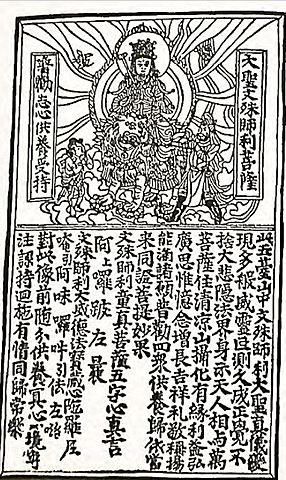 大聖文殊師利菩薩
普勸志心供養受持
此五臺山中文殊師利大聖真儀變
現多般威靈叵測久成正覺不
捨大悲隱法界身示天人相與萬
菩薩住清涼山攝化有緣利益弘
廣思惟憶念增長吉祥礼敬稱揚
能滿諸願普勸四眾供養歸依當
來同證菩提妙果
文殊師利童真菩薩五字心真言
阿上囉跛左曩
文殊師利大威德法寶藏心陀羅尼
唵引阿味囉吽引佉左咯
對此像前隨分供養冥心一境專
注課持迴施有情同歸常樂